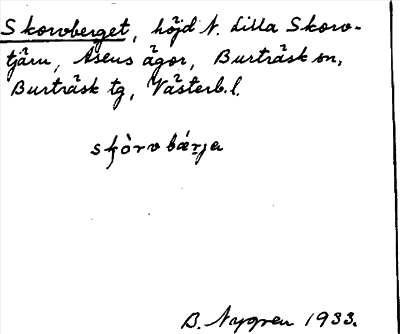 Skorvberget, höjd N. Lilla Skorv-
tjärn, Åsens ägor, Burträsk sn,
Burträsk tg, Västerb. l.
skòrvbárja
B. Nygren 1933.